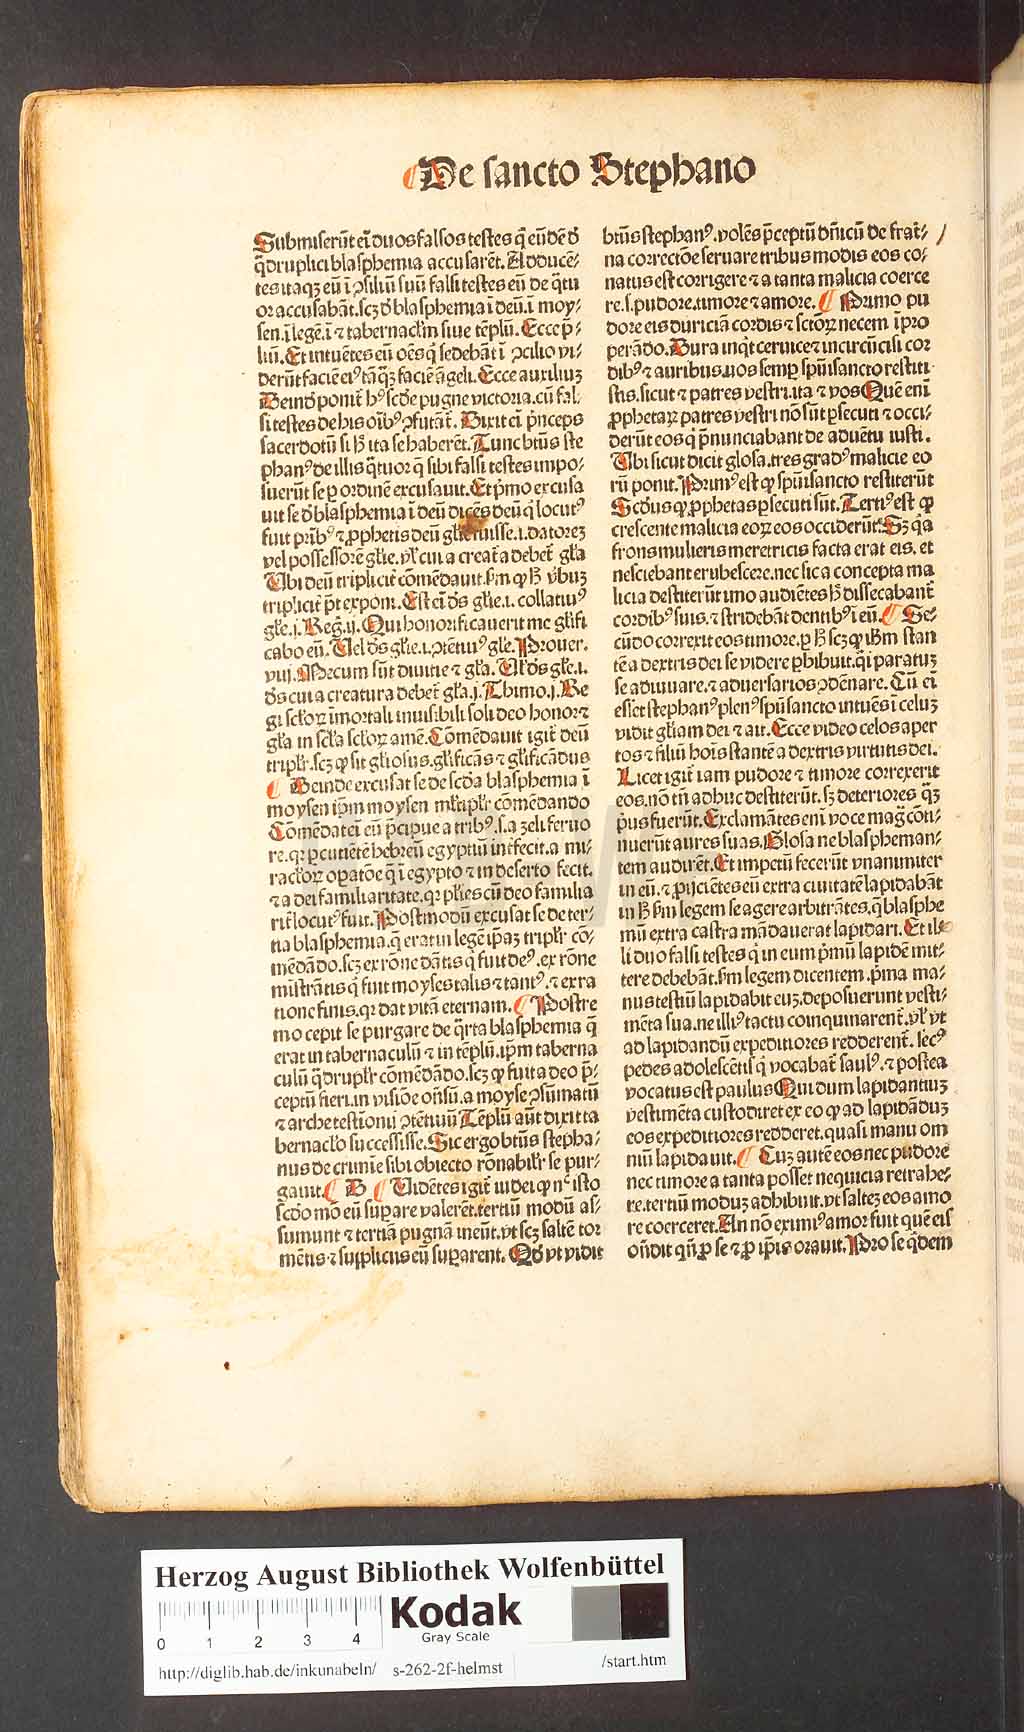 De sancto Stephano
Submiserūt eī duos falsos testes q̄ eūdē ď
q̄druplici blasphemia accusarēt. Adducē-
tes itaqȝ eū ī ɔsiliū suū falsi testes eū de q̄tu
or accusabāt.scȝ ď blasphemia ī deū.ī moy-
sen.ī legē.ī ⁊ tabernacl'm siue tēplū. Ecce p̄-
liū. Et intuētes eū oēs q̇ sedebāt ī ɔcilio vi-
derūt faciē eiꝰ tāq̈ȝ faciē āgeli. Ecce auxiliuȝ
Deinď ponit̄ hꝰ scďe pugne victoria.cū fal
si testes de his oībꝰ ɔfutāt̄. Dixit eī p̄nceps
sacerdotū si ḣ ita se haberēt. Tunc btūs ste
phanꝰ de illis q̄tuor q̄ sibi falsi testes impo-
suerūt se ꝑ ordinē excusauit. Et p̄mo excusa
uit se ď blasphemia ī deū dicēs deū q̇ locutꝰ
fuit pr̄ibꝰ ⁊ ꝓphetis deū gl'ie fuisse.i.datoreȝ
vel possessorē gl'ie. vl' cui a creat̄a debet̄ gl'a
Ubi deū tripliciť cōmēdauit.ẜm ꝙ ḣ v̓buȝ
tripliciť pt̄ exponi. Est eī dn̄s gl'ie.i. collatiuꝰ
gl'e.j. Reḡ.ij. Qui honorificauerit me gl'ifi
cabo eū. Uel dn̄s gl'ie.i. ɔtētiuꝰ gl'e. Prouer.
viij. Mecum sūt diuitie ⁊ gl'a. Ul' dn̄s gl'e.i.
dn̄s cui a creatura debet̄ gl'a.j. Thimo.j. Re
gi sclo̓ꝝ īmortali inuisibili soli deo honor ⁊
gl'a in scl'a scl'oꝝ amē. Cōmēdauit igit̄ deū
tripl'r.scȝ ꝙ sit gl'iosus.gl'ificās ⁊ gl'ificādus
Deinde excusat se de scďa blasphemia ī
moysen ip̄m moysen ml'tipl'r cōmēdando
Cōmēdat eī eū p̄cipue a tribꝰ.s.a zeli feruo
re.qꝛ ꝑcutiētē hebreū egyptiū int̄fecit.a mi-
racl'oꝝ oꝑatōe q̄ ī egypto ⁊ in deserto fecit.
⁊ a dei familiaritate.qꝛ pl'ies cū deo familia
rit̄ locutꝰ fuit. Postmodū excusat se de ter-
tia blasphemia.q̄ erat in legē ip̄aȝ tripl'r cō-
mēdādo.scȝ ex rōne dātis q̇ fuit deꝰ.ex rōne
mīstrātis q̇ fuit moyses talis ⁊ tantꝰ.⁊ ex ra
tione finis.qꝛ dat vitā eternam. Postre
mo cepit se purgare de q̄rta blasphemia q̄
erat in tabernaculū ⁊ in tēplū.ip̄m taberna
culū q̄drupl'r cōmēdādo.scȝ ꝙ fuit a deo p̄-
ceptū fieri.in visiōe on̄sū.a moyse ɔsūmatū
⁊ arche testionij ɔtētiuū Tēplū aūt dixit ta
bernacl'o successisse. Sic ergo btūs stepha-
nus de crimīe sibi obiecto rōnabil'r se pur-
gauit. B Uidētes igit̄ iudei ꝙ nͨ isto
scďo mō eū suꝑare valerēt.tertiū modū as-
sumunt ⁊ tertiā pugnā ineūt.vt scȝ saltē tor
mētis ⁊ supplicijs eū suꝑarent. Qď vt vidit
btūs stephanꝰ.volēs p̄ceptū dn̄icū de frat̄-
na correctōe seruare tribus modis eos co-
natus est corrigere ⁊ a tanta malicia coerce
re.s.pudore.timore ⁊ amore. Primo pu
dore eis duriciā cordis ⁊ sctōꝝ necem īpro
perādo. Dura inq̇t ceruice ⁊ incircūcisi cor
dibꝰ ⁊ auribus.uos semꝑ spūisancto restiti
stis.sicut ⁊ patres vestri.ita ⁊ vos Quē enī
ꝓphetaꝝ patres vestri nō sūt ꝑsecuti ⁊ occi-
derūt eos q̇ p̄nunciabant de aduētu iusti.
Ubi sicut dicit glosa.tres gradꝰ malicie eo
rū ponit. Primꝰ est ꝙ spūisancto restiterūt
Scďus ꝙ ꝓphetas ꝑsecuti sūt. Tertiꝰ est ꝙ
crescente malicia eoꝝ eos occiderūt. Sȝ q̇a
frons mulieris meretricis facta erat eis. et
nesciebant erubescere.nec sic a concepta ma
licia destiterūt imo audiētes ḣ dissecabant̄
cordibꝰ suis.⁊ stridebāt dentibꝰ ī eū. Se-
cūdo correxit eos timore.ꝑ ḣ scȝ ꝙ ih̄m stan
tē a dextris dei se videre ꝑhibuit.q̇si paratuȝ
se adiuuare.⁊ aduersarios ɔdēnare. Cū eī
esset stephanꝰ plenꝰ spūsancto intuēs ī celuȝ
vidit gl'iam dei ⁊ ait. Ecce video celos aper
tos ⁊ filiū hoīs stantē a dextris virtutis dei.
Licet igit̄ iam pudore ⁊ timore correxerit
eos.nō tn̄ adhuc destiterūt.sȝ deteriores q̈ȝ
p̓us fuerūt. Exclamātes enī voce mag̈ cōti-
nuerūt aures suas. Glosa ne blaspheman-
tem audirēt. Et impetū fecerūt vnanimiter
in eū.⁊ ꝓijciētes eū extra ciuitatē lapidabāt
in ḣ ẜm legem se agere arbitrātes.q̄ blasphe
mū extra castra mādauerat lapidari. Et il-
li duo falsi testes q̇ in eum p̓mū lapidē mit-
tere debebāt.ẜm legem dicentem.p̓ma ma-
nus testiū lapidabit euȝ.deposuerunt vesti-
mēta sua.ne illiꝰ tactu coinquinarent̄.vl' vt
ad lapidandū expeditiores redderent̄. secꝰ
pedes adolescētis q̇ vocabat̄ saulꝰ.⁊ postea
vocatus est paulus Qui dum lapidantiuȝ
vestimēta custodiret ex eo ꝙ ad lapidāduȝ
eos expeditiores redderet.quasi manu om
niū lapidauit. Cuȝ autē eos nec pudore
nec timore a tanta posset nequicia retrahe-
re.tertiū moduȝ adhibuit.vt salteȝ eos amo
re coerceret. An nō eximiꝰ amor fuit quē eis
on̄dit qn̄ ꝓ se ⁊ ꝓ ip̄is orauit. Pro se q̇dem
Herzog August Bibliothek Wolfenbüttel
0 1 2 3 4
Kodak
Gray Scale
http://diglib.hab.de/inkunabeln/ s-262-2f-helmst /start.htm